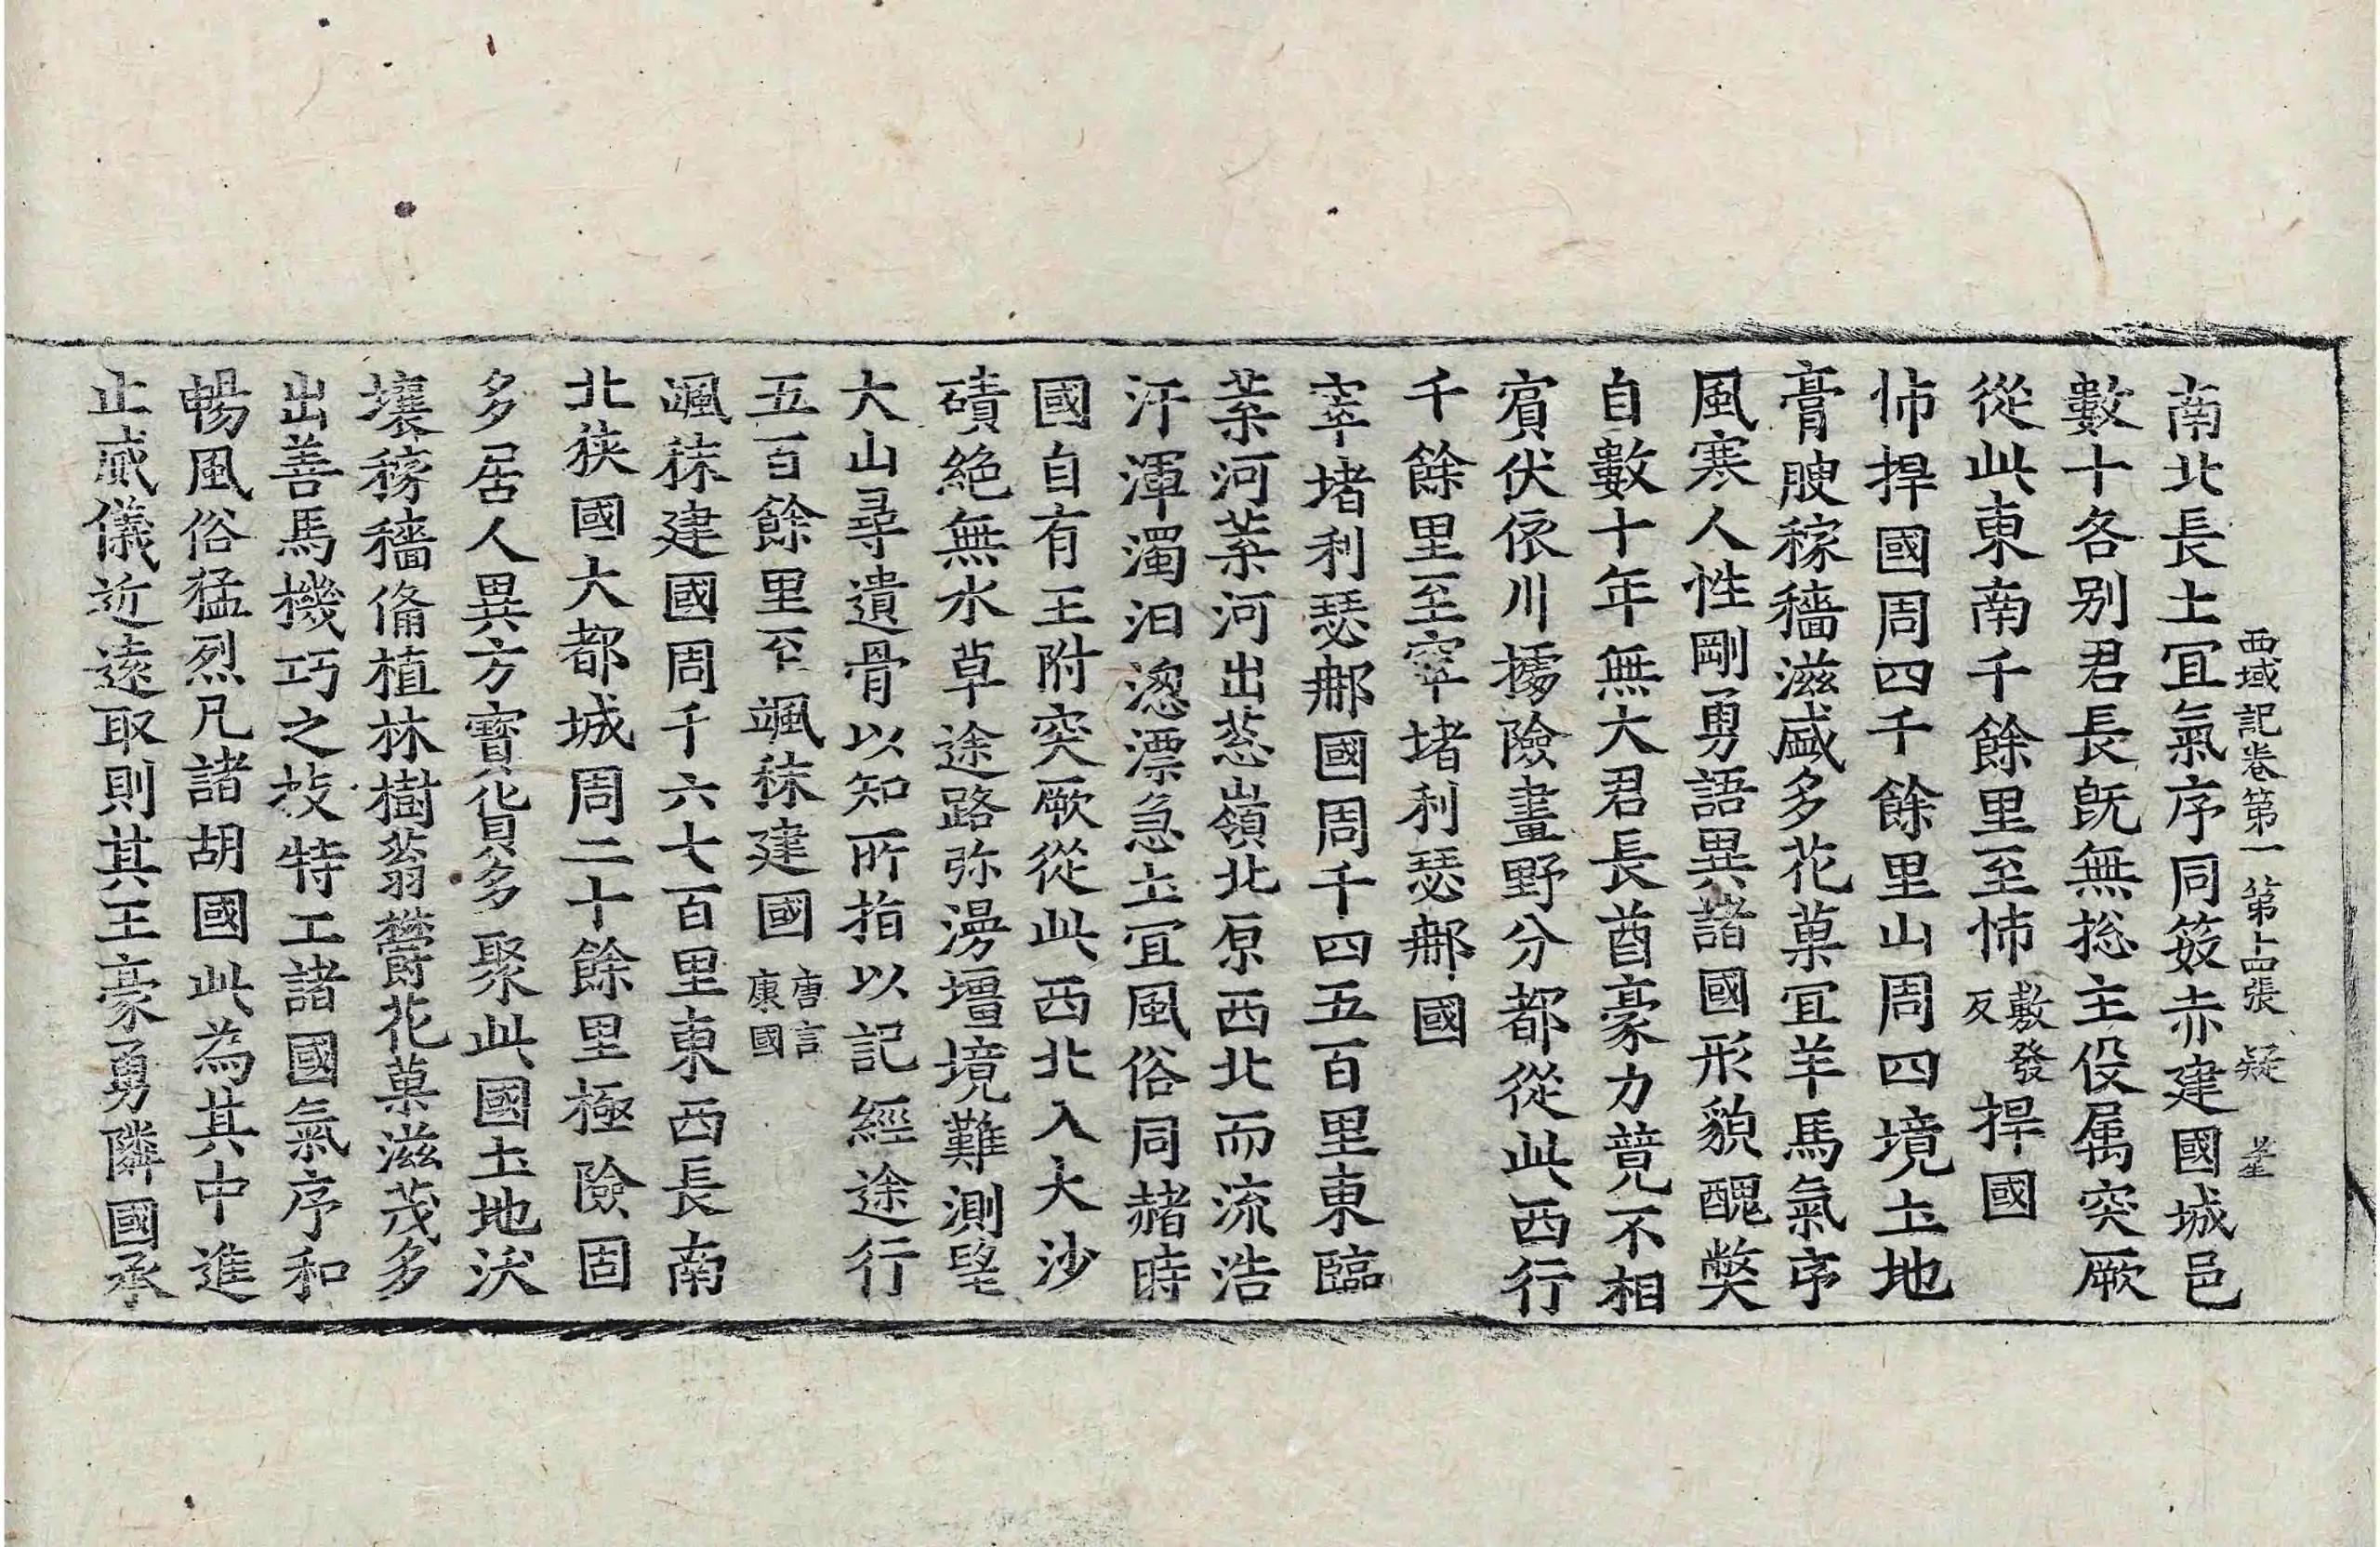 西域記卷第一 第十四張 疑
南北長土冝氣序同笯赤建國城邑
數十各別君長旣無捴主伇属突厥
從此東南千餘里至㤄敷發反捍國
㤄捍國周四千餘里山周四境土地
膏腴稼穡滋盛多花菓冝羊馬氣序
風寒人性剛勇語異諸國形貌醜弊
自數十年無大君長酋豪力竸不相
賔伏依川據險畫野分都從此西行
千餘里至窣堵利瑟䣝國
窣堵利瑟䣝國周千四五百里東臨
葉河葉河出葱嶺北原西北而流浩
汗渾濁汩淴漂急土冝風俗同赭時
國自有王附突厥從此西北入大沙
磧絶無水草途路弥漫壃境難測望
大山尋遺骨以知所指以記經途行
五百餘里至颯秣建國唐言康國
颯秣建國周千六七百里東西長南
北狹國大都城周二十餘里極險固
多居人異方寶貨多聚此國土地沃
壤稼穡俻植林樹蓊欝花菓滋茂多
出善馬機巧之技特工諸國氣序和
暢風俗猛烈凡諸胡國此為其中進
止威儀近遠取則其王豪勇隣國承